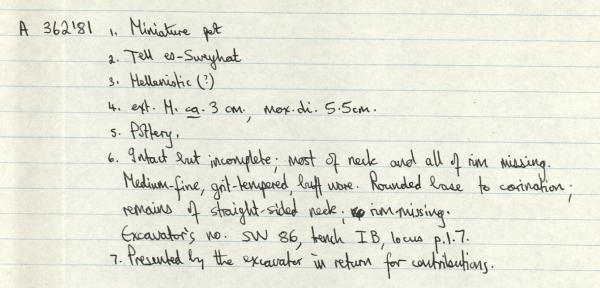 A 362'81 1. Miniature pot
2. Tell es-Sweyhat
3. Hellenistic (?)
4. ext. H. ca. 3 cm., max. di. 5.5cm.
5. Pottery.
6. Intact but incomplete; most of neck and all of rim missing.
Medium-fine, grit-tempered, buff ware. Rounded base to carination;
remains of straight-sided neck; rim missing.
Excavator's no. SW 86, trench IB, locus p.1.7.
7. Presented by the excavator in return for contributions.